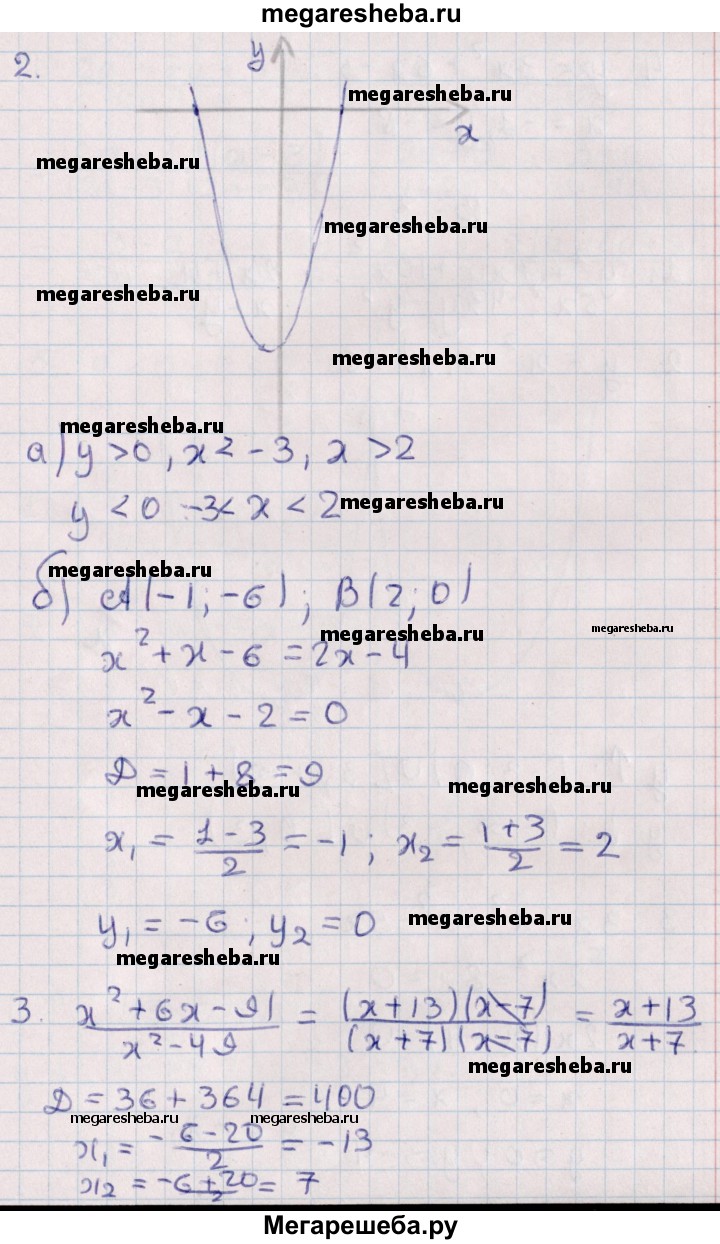 megaresheba.ru
2.
y
megaresheba.ru
x
megaresheba.ru
megaresheba.ru
megaresheba.ru
megaresheba.ru
megaresheba.ru
а) y > 0, x < -3, x > 2
y < 0 -3 < x < 2 megaresheba.ru
megaresheba.ru
б) A(-1; -6); B(2; 0)
megaresheba.ru megaresheba.ru
x² + x - 6 = 2x - 4
x² - x - 2 = 0
D = 1 + 8 = 9
megaresheba.ru megaresheba.ru
x₁ = (1 - 3)/2 = -1; x₂ = (1 + 3)/2 = 2
y₁ = -6; y₂ = 0 megaresheba.ru
megaresheba.ru
3. (x² + 6x - 91)/(x² - 49) = ((x + 13)(x - 7))/((x + 7)(x - 7)) = (x + 13)/(x + 7)
megaresheba.ru
D = 36 + 364 = 400
megaresheba.ru megaresheba.ru
x₁ = (-6 - 20)/2 = -13
x₂ = (-6 + 20)/2 = 7
Мегарешеба.ру